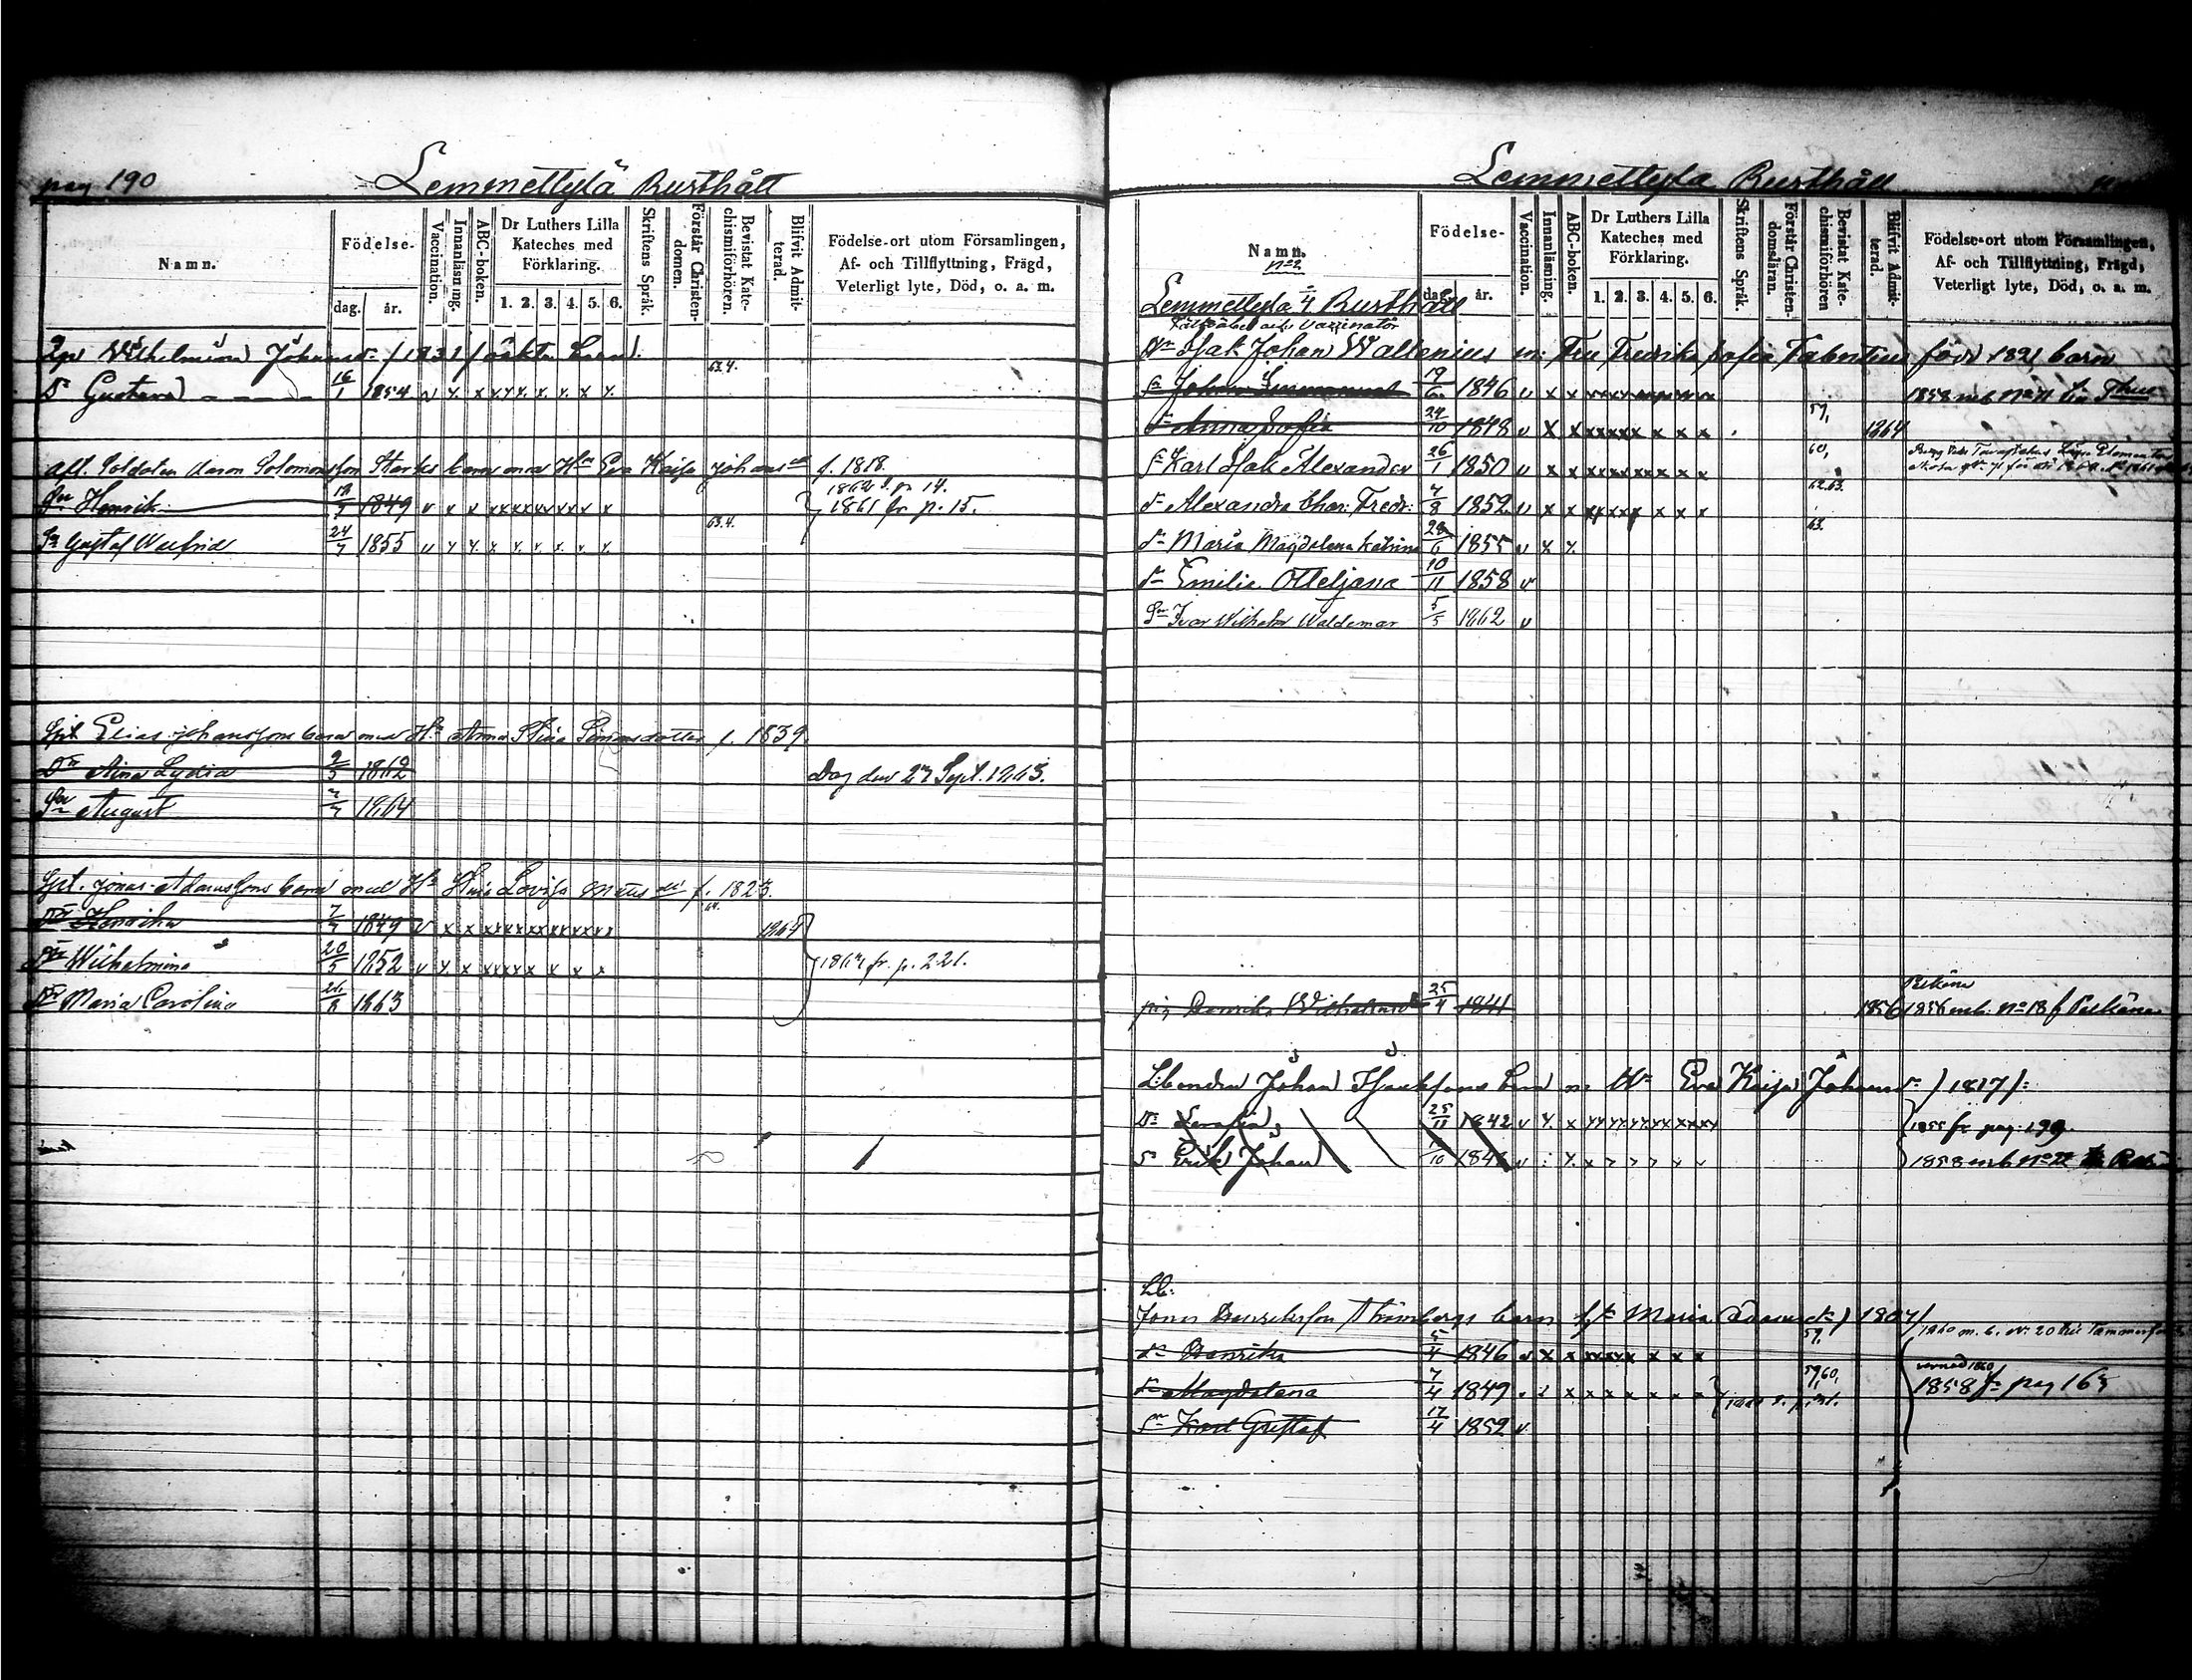 pag 190
Lemmettylä Rusthåll
Namn.
Födelse-
dag.
år.
Vaccination.
Innanläsning.
ABC-boken.
Dr Luthers Lilla
Kateches med
Förklaring.
1. 2. 3. 4. 5. 6.
Skriftens Språk.
Förstår Christen-
domen.
Bevistat Kate-
chismiförhören.
Blifvit Admit-
terad.
Födelse-ort utom Församlingen,
Af- och Tillflyttning, Frägd,
Veterligt lyte, Död, o. a. m.
Wilhelmina Johansdr /1831/ oäkta barn.
63.4.
Dr Gustava 16/1 1854 v x x x x x x x x x
afl. Soldaten Aaron Salomonsson Starks barn med Hu Eva Kaisa Johansdr f. 1818.
1862 p. 14.
Sn Henrik 1849 v x x xxxxxxxxx x 1861 fr p. 15.
63.4.
Sn Gustaf Wilfrid 24/7 1855 v x x x x x x x x
Spt. Elias Johanssons barn med Hu Anna Stina Simonsdotter f. 1839.
Dr Aina Lydia 2/5 1862 Dog den 27 Sept. 1863.
Sn August 1864
Spt. Jonas Adamssons barn med Hu Lovisa Mattsdr f. 1823.
64.
Dr Henrika 7/7 1849 v x x xxxxxxxxxxx 1864
Dr Wilhelmina 20/5 1852 v x x xxxxx x x x fr. p. 221.
Dr Maria Carolina 26/8 1863
Lemmettylä Rusthåll
Namn.
Födelse-
dag.
år.
Vaccination.
Innanläsning.
ABC-boken.
Dr Luthers Lilla
Kateches med
Förklaring.
1. 2. 3. 4. 5. 6.
Skriftens Språk.
Förstår Christen-
domsläran.
Bevistat Kate-
chismiförhören
Blifvit Admit-
terad.
Födelse-ort utom Församlingen,
Af- och Tillflyttning, Frägd,
Veterligt lyte, Död, o. a. m.
No 2
Lemmettylä Rusthåll
och Vaccinatör
Isak Johan Waltenius m: Fru Fredrika Sofia Fabritius född 1821 barn
Sn Johan Immanuel 19/6 1846 v x x 1858 mb No 71
57,
dr Anna Sofia 24/10 1848 v x x xxxxx x x x 1864
60,
Sn Karl Isak Alexander 26/1 1850 v x x xxxxx x x x
62.63.
dr Alexandra Char: Fredr: 7/8 1852 v x x xxxx x x x
63.
dr Maria Magdalena Katrina 28/6 1855 v x x
dr Emilia Otteljana 10/11 1858 v
Sn Ivar Wilhelm Waldemar 5/5 1862 v
Pelkäne
pig Henrika Wilhelmsdr 25/4 1841 1856 1856 mb. No 18 f Pelkäne
Lbonden Johan Isakssons barn m Hu Eva Kaisa Johansdr /1817/:
Dr Serafia 25/11 1842 v x x xxxxxxxxxxx 1855 fr pag: 199.
Sn Erik Johan 1858 mb No 22
Lb:
Jonas Henrikssons barn Maria Adamsdr /1807/
59, 1860 m. b. No 20 till Tammerfors
dr Henrika 5/4 1846 v x x xxxxx x x x
59,60,
dr Magdalena 7/4 1849 x x x x x x x 1858 fr pag 165
Sn Karl Gustaf 17/4 1852 v